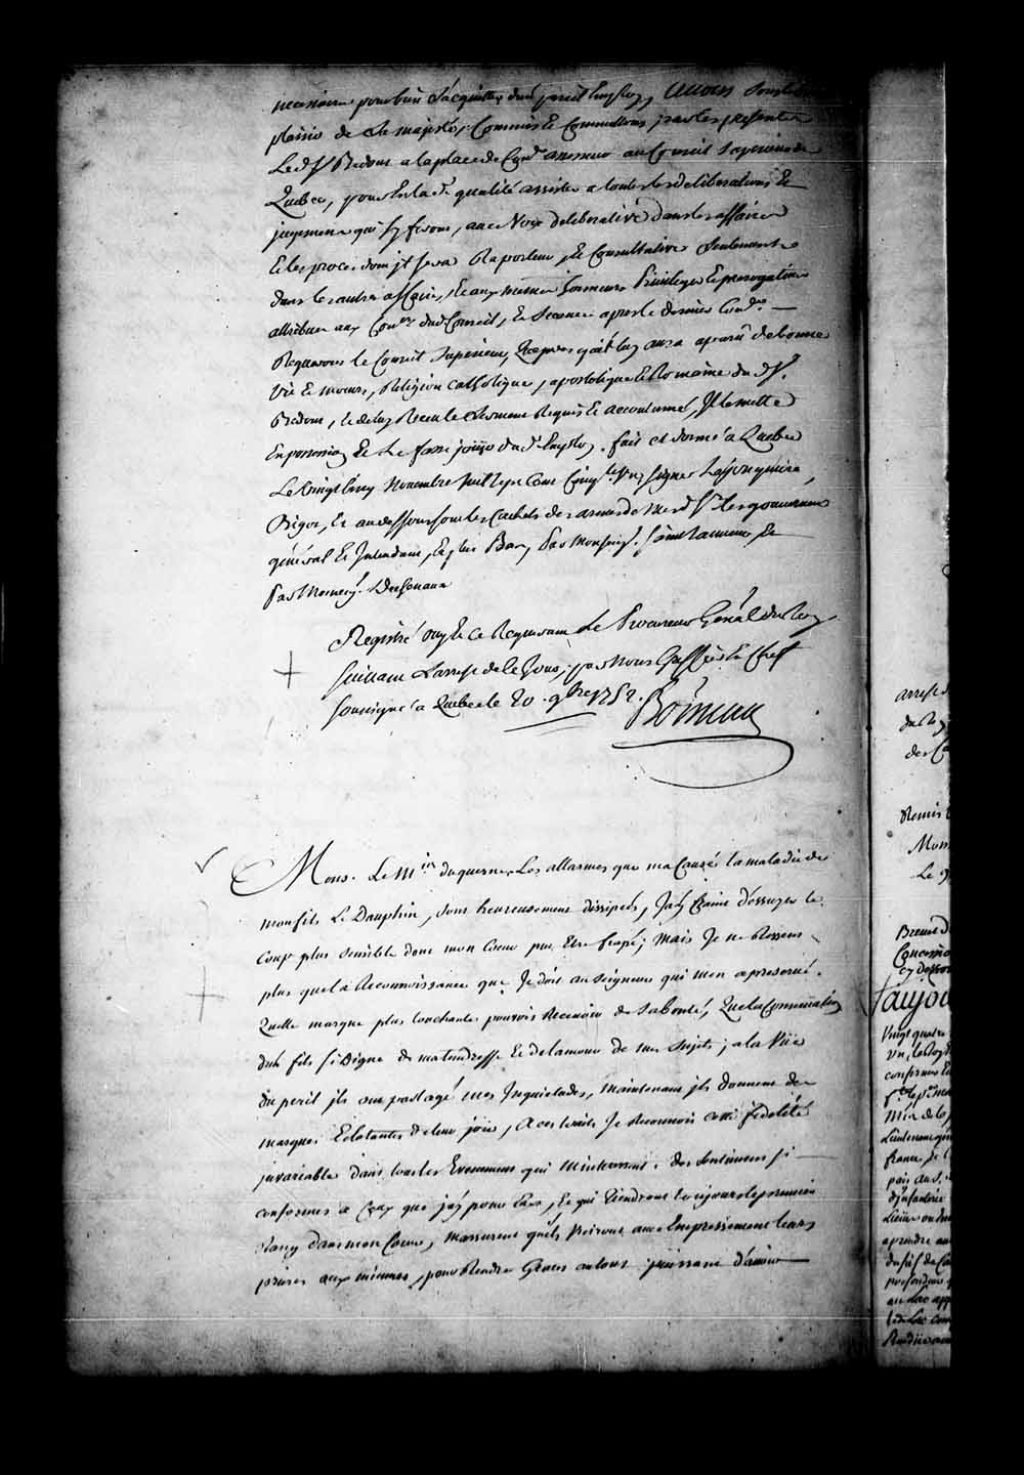 necessaire pour bien s'acquitter dud. employ, avons sous le
plaisir de Sa majesté, Commis et Commettons par les presentes
Led. Sr. Bedout a la place de Conr. assesseur au Conseil Superieur de
Quebec, pour en lad. qualité assister a toutes les deliberations et
jugemens qui s'y feront, avec Voix deliberative dans les affaires
et les procés dont jl sera Raporteur, et Consultative seulement
dans les autres affaires, et aux mesmes honneurs Privileges et prerogatives
attribués aux Coners. dud. Conseil, et Seance apres le dernier Conser.
Requerons le Conseil Superieur, qu'apres qu'il luy aura aparû de bonne
vie et moeurs, Religion catholique, apostolique et Romaine du d. Sr.
Bedout, et de luy Receu le serment Requis et accoutumé, Jl le mette
En possession et le fasse joüir du d. Employ. fait et donné a Quebec
Le vingt cinq Novembre Mil sept cens Cinqte. un, signés Lajonquiere,
Bigot, et au dessous sont les Cachets des armes de mesd. Srs. les gouverneur
général et Jntendant, et plus Bas, Par Monseigr. saint sauveur, et
Par Monseigr. Deschenaux
Registré ouy et ce Requerant Le Procureur Genéral du Roy
suivant L'arrest de ce Jour, par Nous Greffier en Chef
soussigné a Quebec le 20. 9bre 1752. Boisseau
Mons. Le Mis. duquesne, Les allarmes que ma Causé la maladie de
mon fils Le Dauphin, sont heureusement dissipées, J'ay Craint d'essuyer le
coup plus sensible dont mon Coeur put Etre frapé; Mais Je ne Ressens
plus que la Reconnoissance que Je dois au seigneur qui men a preservé.
Quelle marque plus touchante pouvois Recevoir de sa bonté, que la Conservation
d'un fils si Digne de ma tendresse et de l'amour de mes sujets; a la Vüe
du peril jls ont partagé mes Jnquietudes, maintenant jls donnent des
marques Eclatantes de leur joie, A ces traits Je Reconnois cette fidelité
jnvariable dans tous les Evenemens qui m'interessent. des sentimens si
conformes a Ceux que j'ay pour Eux, et qui tiendront toujours le premier
Rang dans mon Coeur, massurent qu'ils Uniront avec Empressement leurs
prieres aux miennes, pour Rendre Graces au tout puissant d'avoir
arrest d
du Roy
Remis
Mons
Le
Brevet d
Concession
cy dessous
aujou
Vingt quatre
un, le Roy
confirmer
Lieutenant
france
pais
d'jnfanterie
aprendre